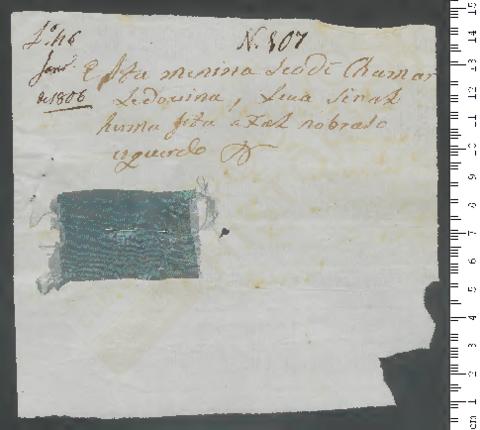 Janr.º
de 1806
N. 807
Esta menina se ade Chamar
Ledovina, Leva Sinal
huma fita atal no braso
isquerdo
15
14
13
12
11
10
9
8
7
6
5
4
3
2
1
cm